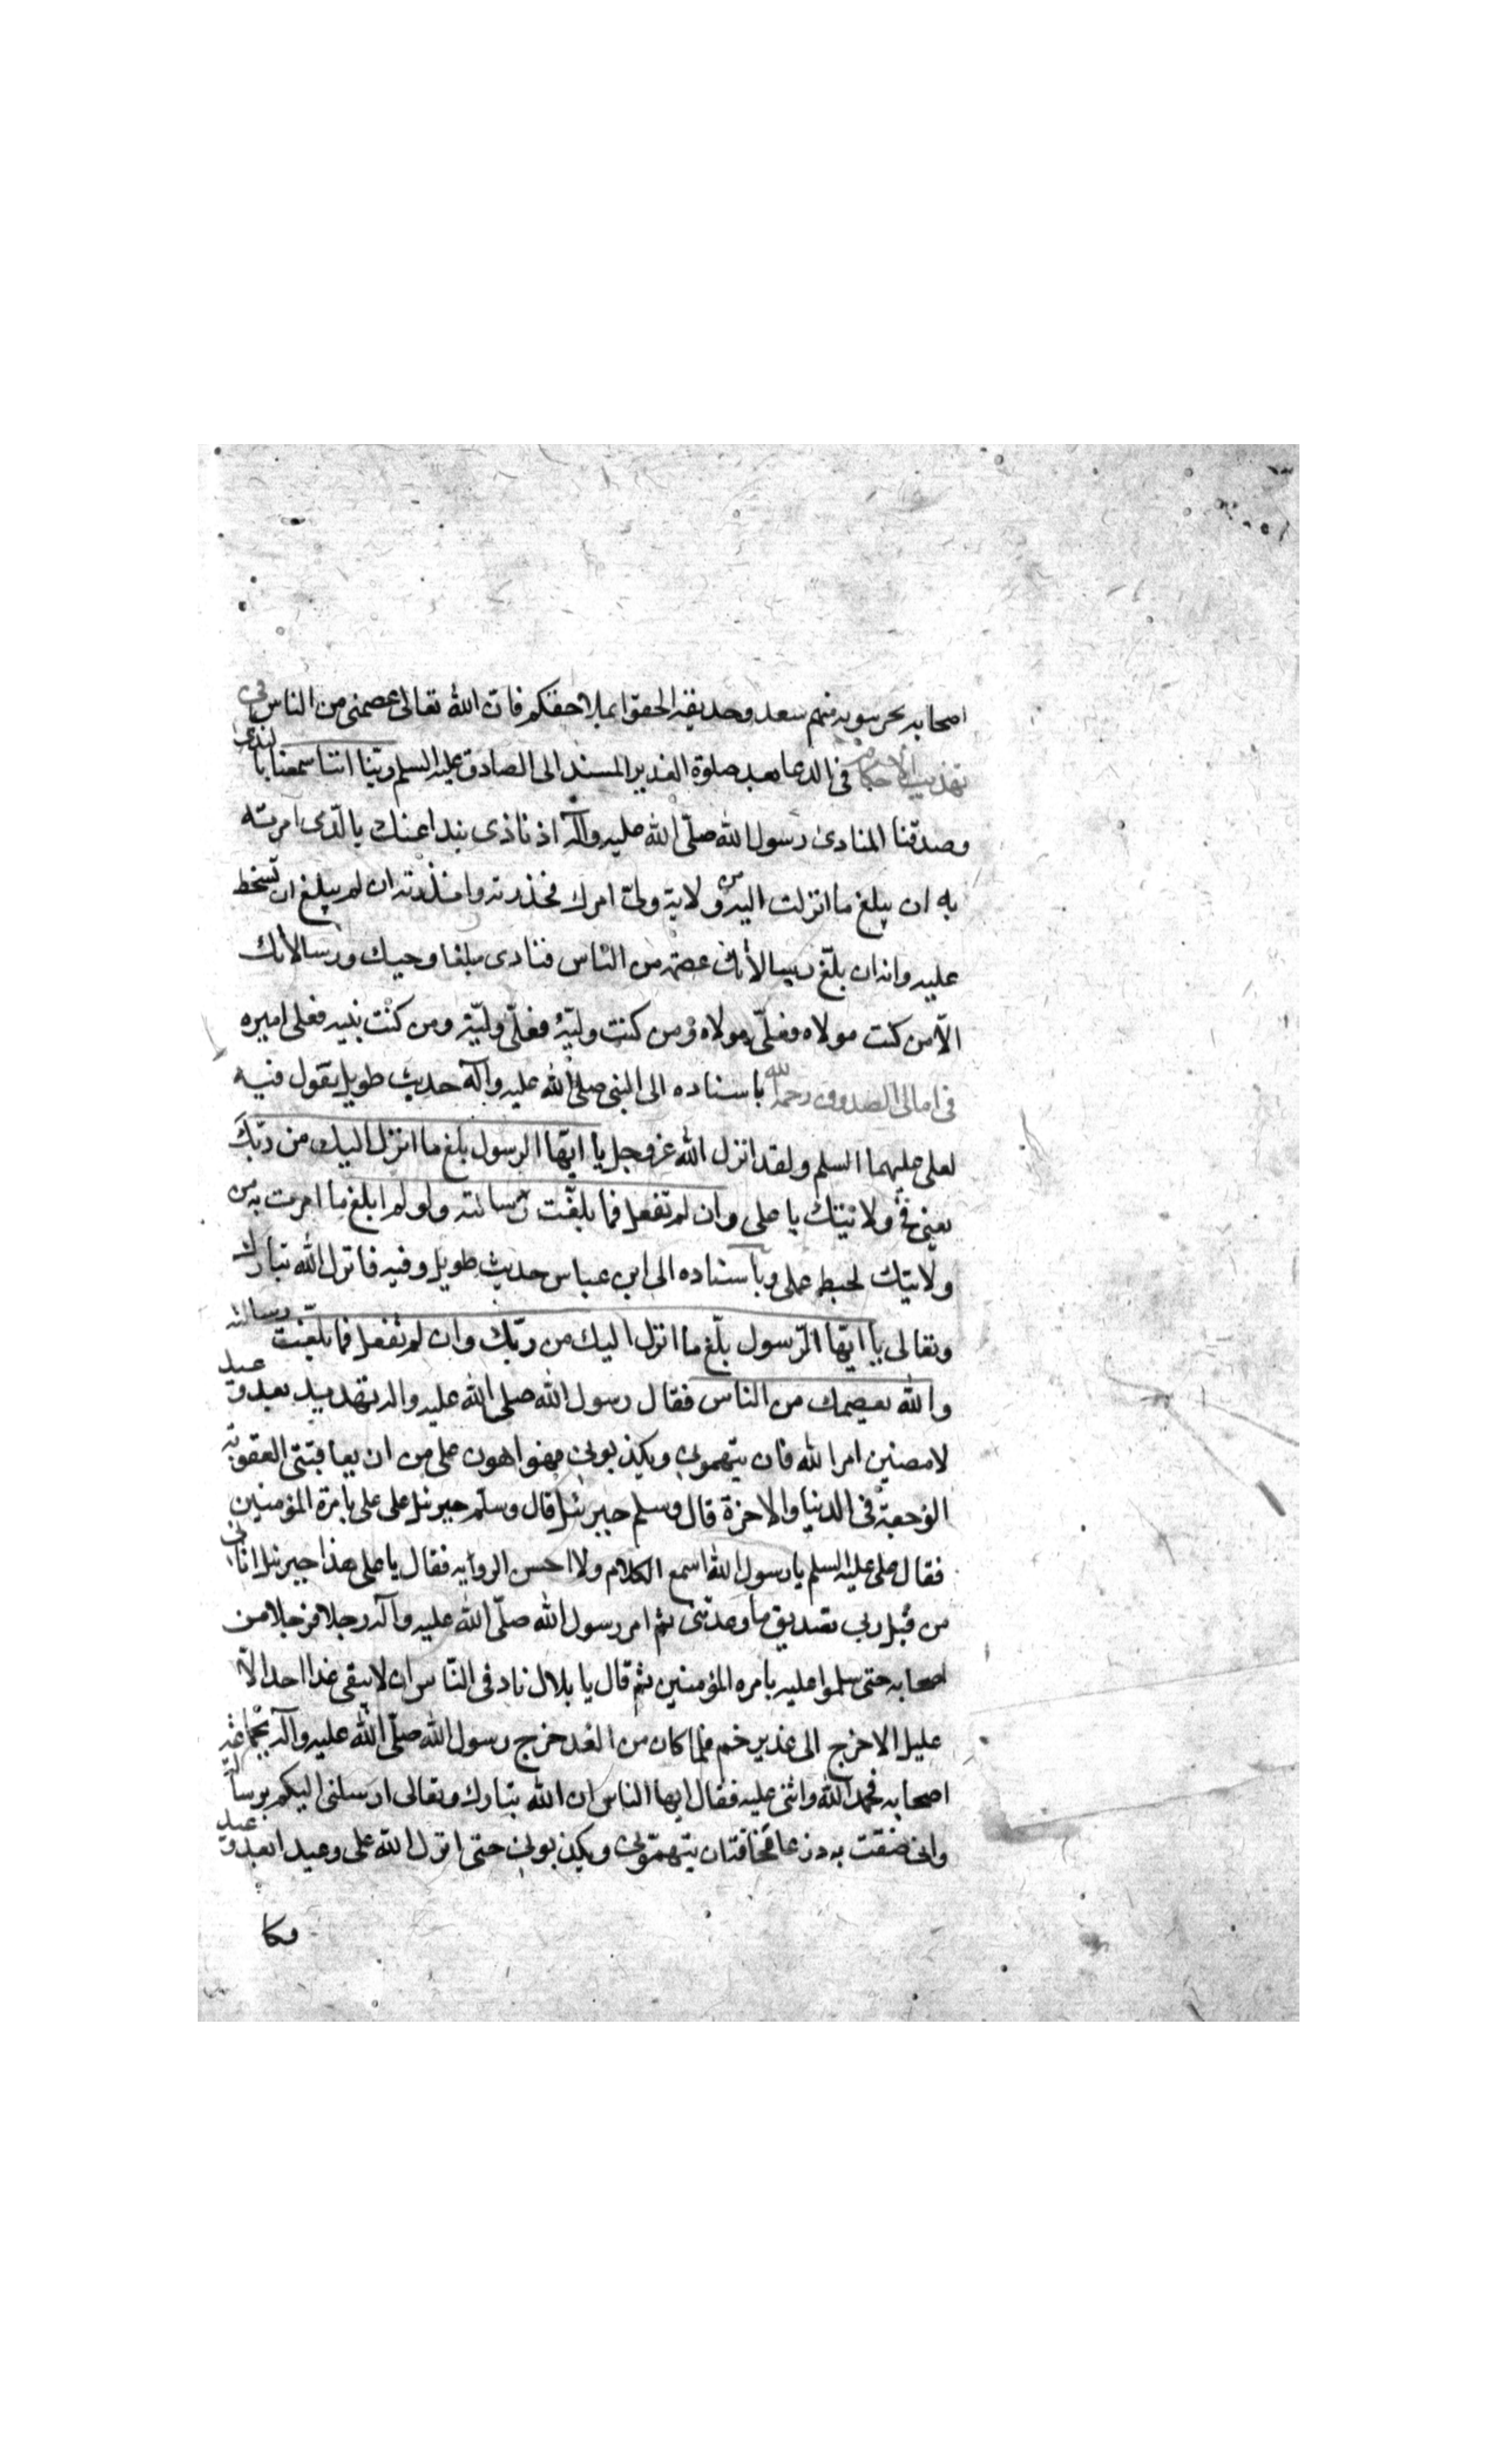 اصحابه يحرسونه منهم سعد وحذيفة الحقوا بملاحقكم فان الله تعالى عصمنى من الناس فى
تهذيب الاحكام فى الدعا بعد صلوة الغدير المسند الى الصادق عليه السلم ربنا اننا سمعنا بالندى
وصدقنا المنادى رسول الله صلّى الله عليه وآله اذ نادى بندا عنك بالذى امرته
به ان يبلغ ما انزلت اليه من ولاية ولى امرك فحذرته وانذرته ان لم يبلغ ان تسخط
عليه وانه ان بلّغ رسالاتك عصمته من الناس فنادى مبلغا وحيك ورسالاتك
الا من كنت مولاه فعلىّ مولاه ومن كنت وليّه فعلىّ وليّه ومن كنت نبيه فعلى اميره
فى امالى الصدوق رحمه الله باسناده الى النبى صلى الله عليه وآله حديث طويل يقول فيه
لعلى عليهما السلم ولقد انزل الله عز وجل يا ايها الرسول بلغ ما انزل اليك من ربّك
يعنى فى ولايتك يا على وان لم تفعل فما بلّغت رسالته ولو لم ابلغ ما امرت به من
ولايتك لحبط عملى وباسناده الى ابن عباس حديث طويل وفيه فانزل الله تبارك
وتعالى يا ايّها الرّسول بلّغ ما انزل اليك من ربّك وان لم تفعل فما بلّغت رسالته
والله يعصمك من الناس فقال رسول الله صلى الله عليه وآله تهديد بعد وعيد
لامضين امر الله فان يتهمونى ويكذبونى فهو اهون على من ان يعاقبنى العقوبة
الموجعة فى الدنيا والاخرة قال وسلم جبرئيل قال وسلم جبرئيل على على بامرة المؤمنين
فقال على عليه السلم يا رسول الله اسمع الكلام ولا احس الرواية فقال يا على هذا جبرئيل اتانى
من قبل ربى بتصديق ما وعدنى ثم امر رسول الله صلّى الله عليه وآله رجلا فرجلا من
اصحابه حتى سلموا عليه بامره المؤمنين ثم قال يا بلال ناد فى النّاس ان لا يبقى غدا احد الا
عليل الا خرج الى غدير خم فلما كان من الغد خرج رسول الله صلّى الله عليه وآله بجماعة
اصحابه فحمد الله واثنى عليه فقال ايها الناس ان الله تبارك وتعالى ارسلنى اليكم برسالة
وانى ضقت به ذرعا مخافة ان يتهمّونى ويكذبونى حتى انزل الله على وعيدا بعد وعيد
فكا